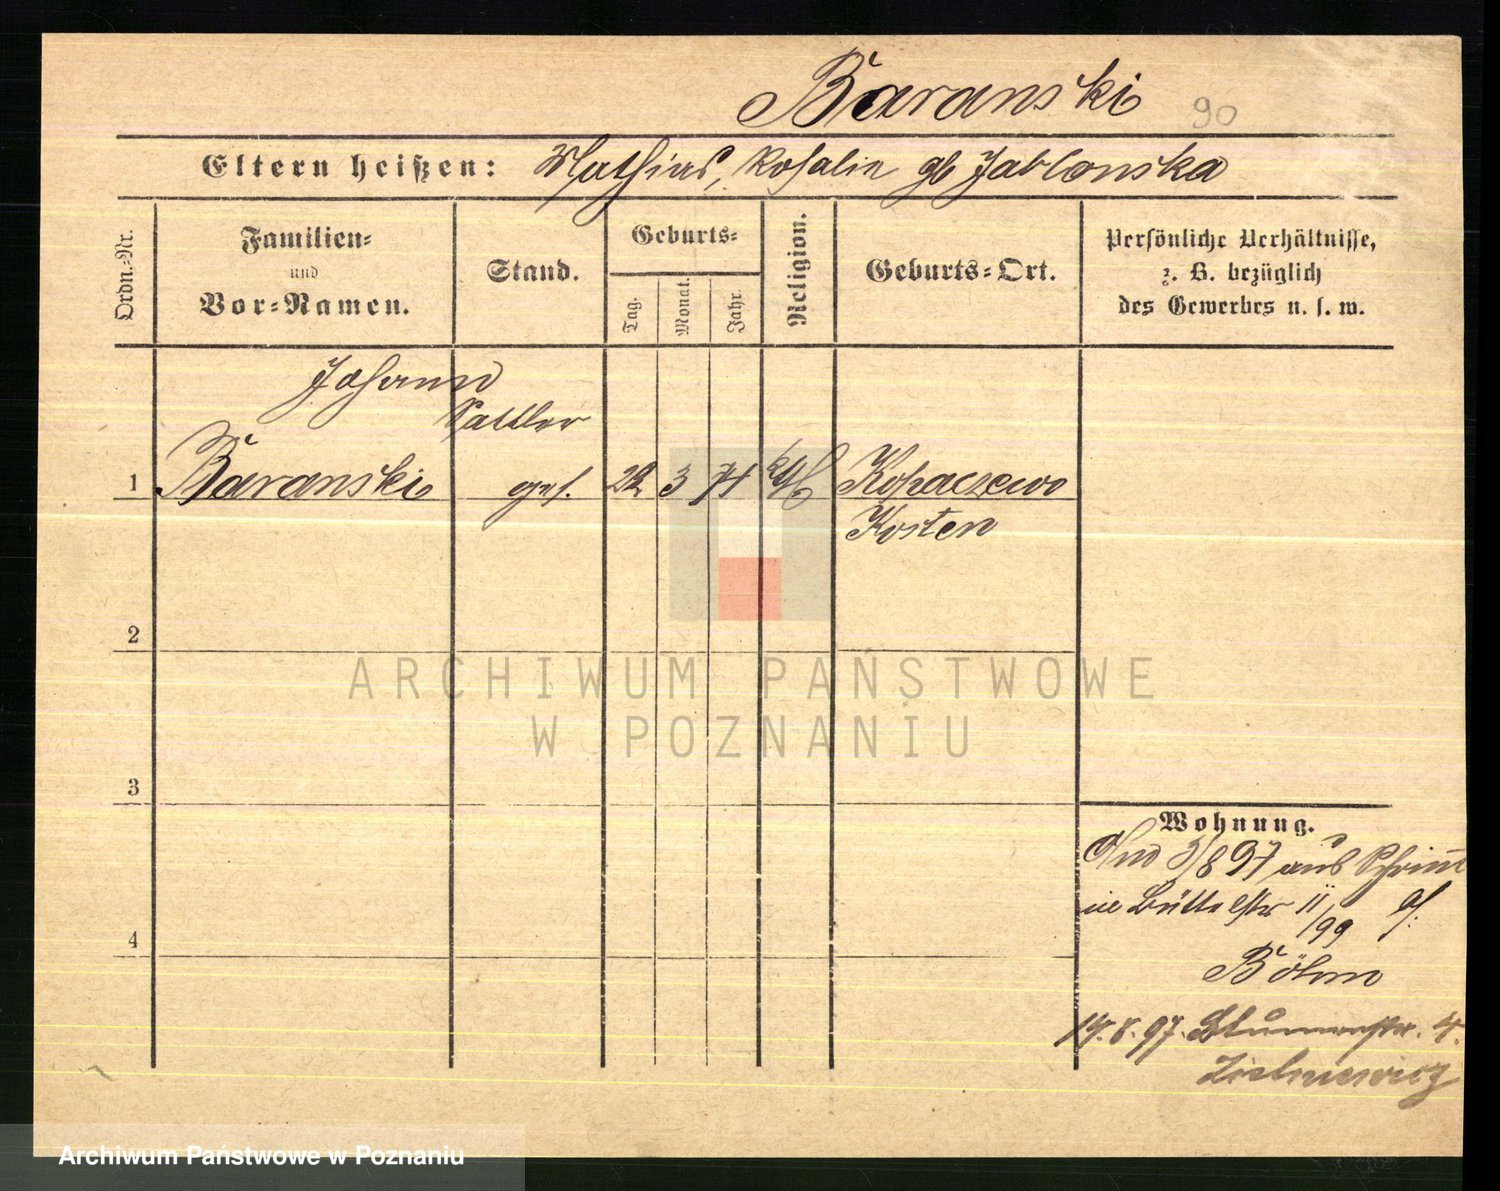 Baranski 90
Eltern heißen: Mathias, Rosalie gb Jablonska
Ordn.-Nr.
Familien-
und
Vor-Namen.
Stand.
Geburts-
Tag.
Monat.
Jahr.
Religion.
Geburts-Ort.
Persönliche Verhältnisse,
z. B. bezüglich
des Gewerbes u. s. w.
Johann
Sattler
1 Baranski ges. 22 3 74 kth Kopaczewo
Kosten
2
3
4
ARCHIWUM PAŃSTWOWE
W POZNANIU
Wohnung.
3/8 97 aus Schrimm
in Büttelstr 11/99
Böhm
14.8.97. Blumenstr. 4.
Archiwum Państwowe w Poznaniu